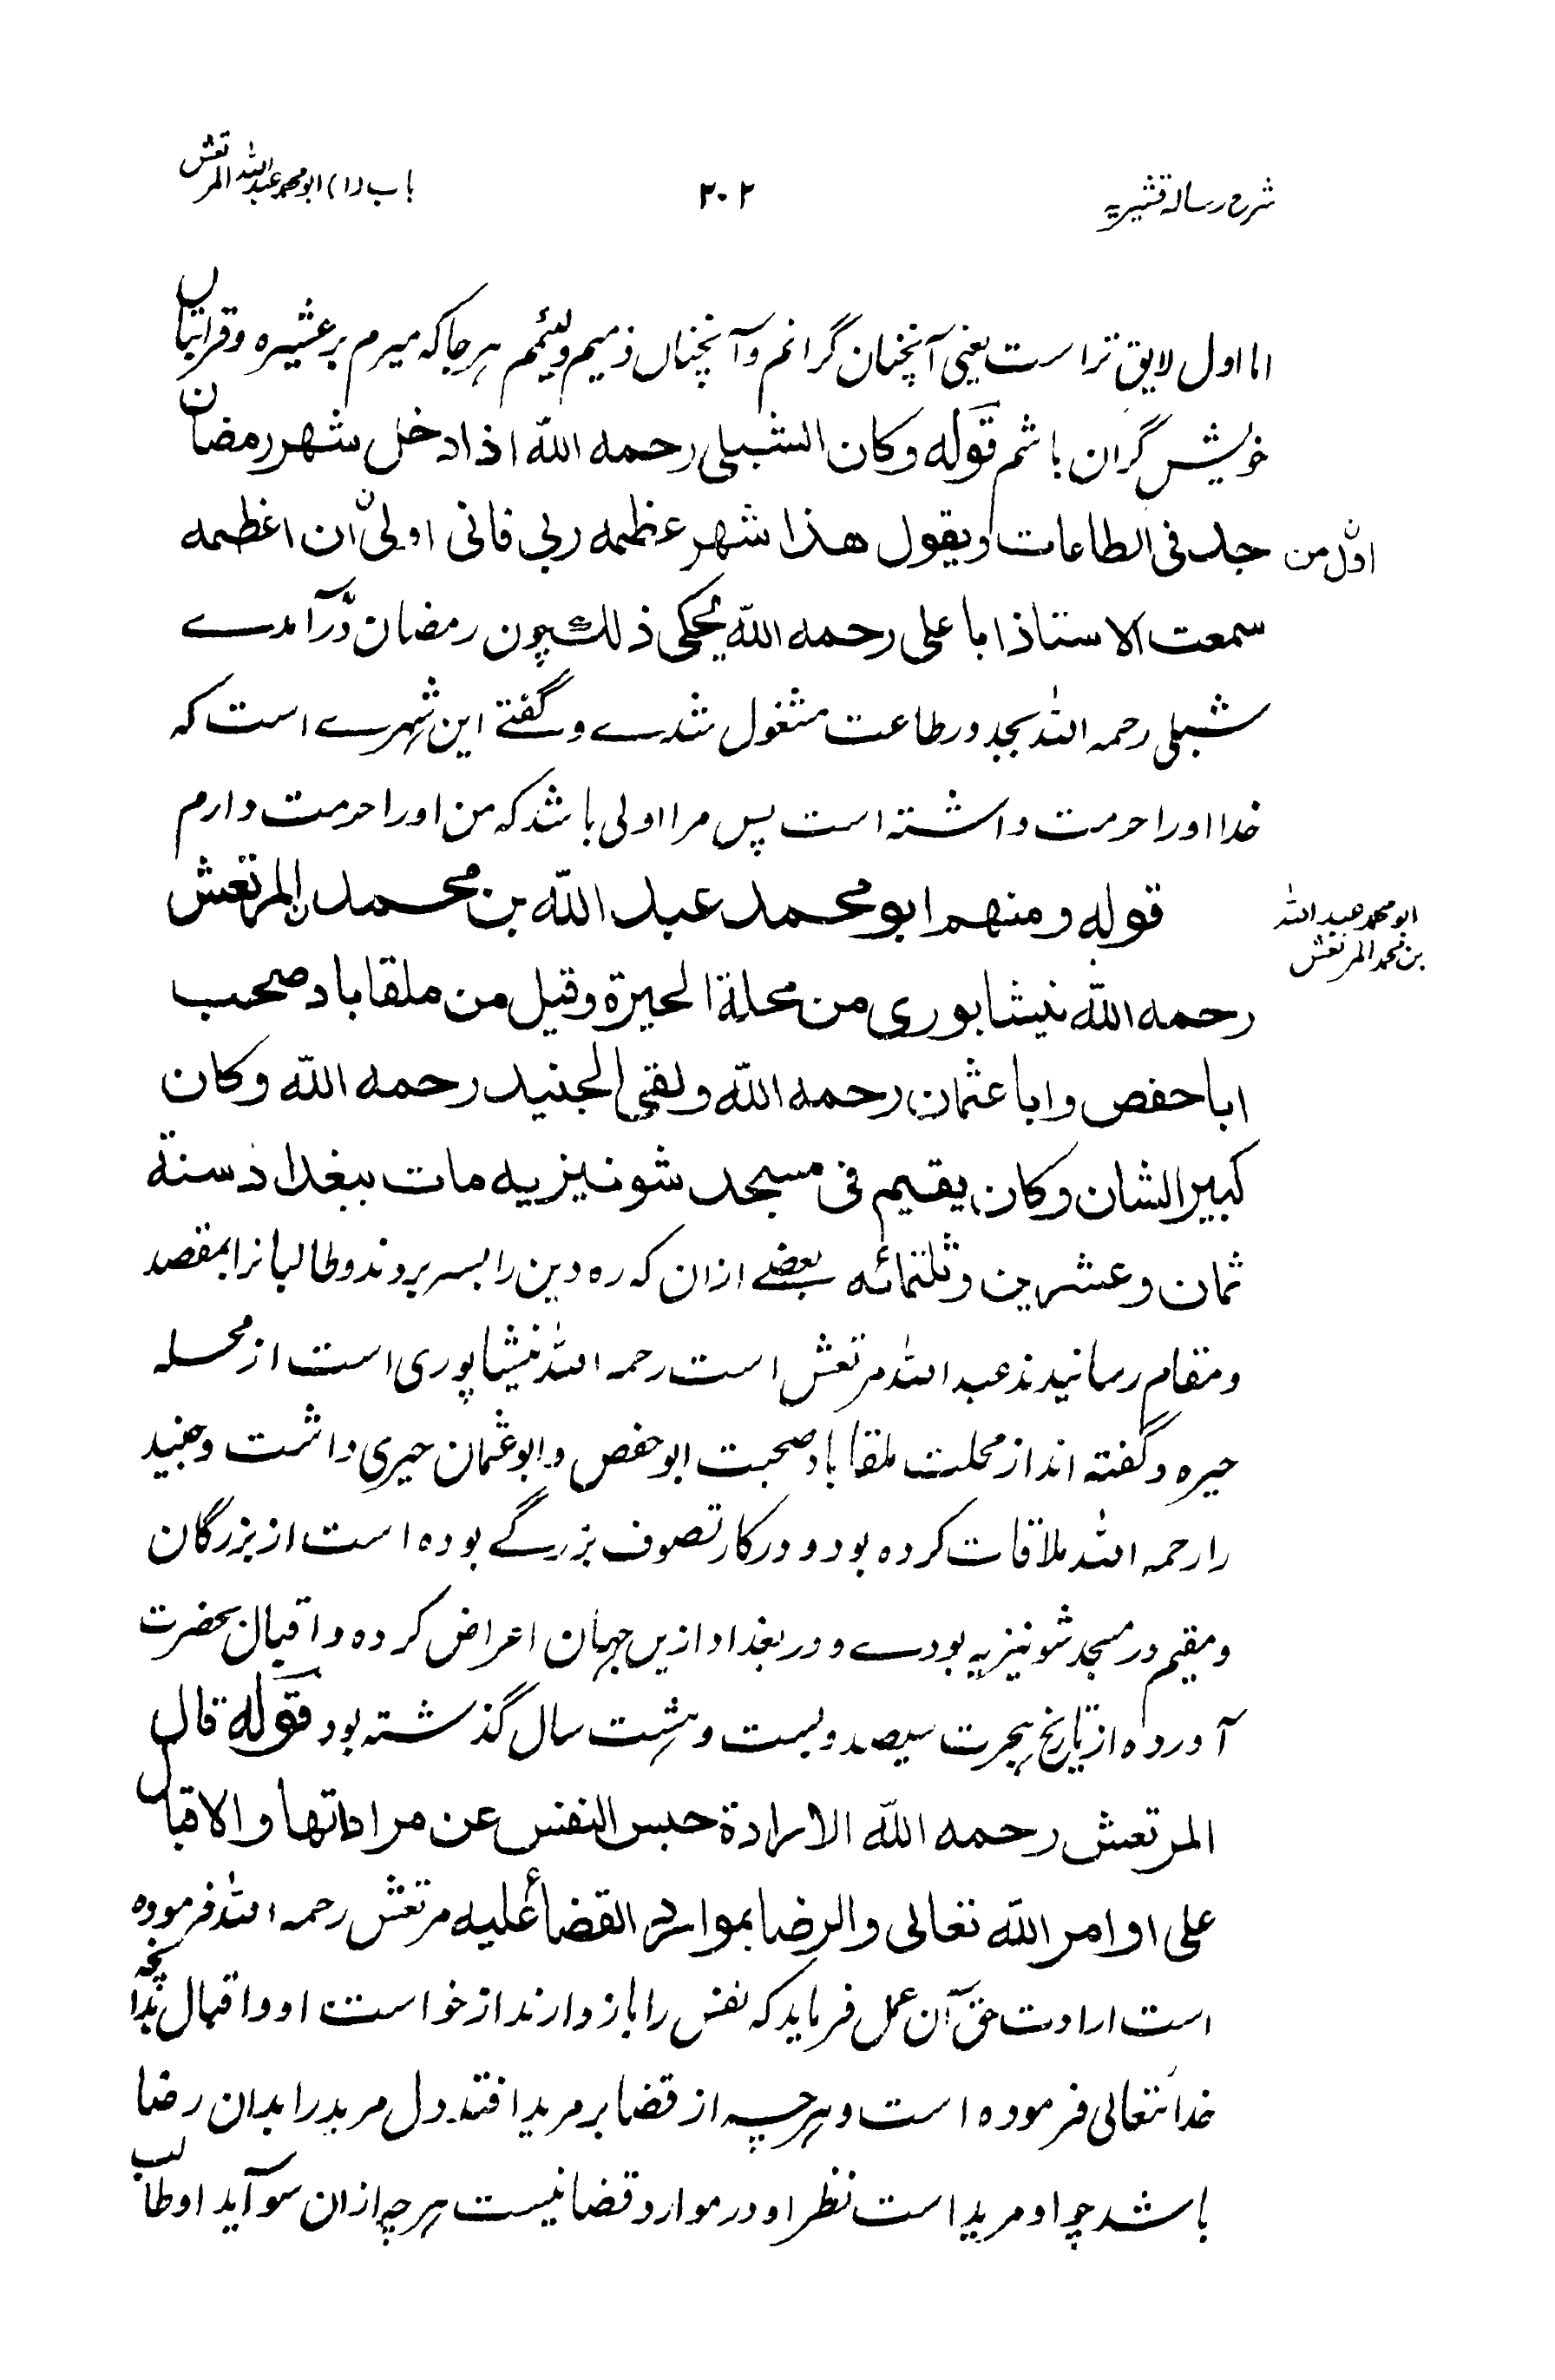 شرح رساله قشیریہ
۲۰۲
باب (۱) ابو محمد عبد الله المرتعش
اما اول لایق تر است یعنی آنچنان گرانم و آنچناں ذمیم و لئیمم ہر جا کہ میرم بر عشیرہ و قرابتاں
خویش گران باشم قوله وکان الشبلی رحمه الله اذا دخل شهر رمضان
جد فی الطاعات ویقول هذا شهر عظمه ربی فانی اولیٰ ان اعظمه
اوّل من
سمعت الاستاذ ابا علی رحمه الله یحکی ذلك چون رمضان در آمدے
شبلی رحمہ اللہ بجد در طاعت مشغول شدے و گفتے این شہرے است کہ
خدا اورا حرمت داشتہ است پس مرا اولی باشد کہ من اورا حرمت دارم
قوله ومنهم ابو محمد عبد الله بن محمدن المرتعش
ابو محمد عبد اللہ
بن محمد المرتعش
رحمه الله نیشابوری من محلة الحیرة وقیل من ملقاباد صحب
ابا حفص وابا عثمان رحمه الله ولقی الجنید رحمه الله وکان
کبیر الشان وکان یقیم فی مسجد شونیزیه مات ببغداذ سنة
ثمان وعشرین وثلثمائه بعضے ازان کہ رہ دین را بسر بردند و طالبانرا بمقصد
و مقام رسانیدند عبد اللہ مرتعش است رحمہ اللہ نیشاپوری است از محلہ
حیرہ و گفتہ اند از محلت ملقاباد صحبت ابو حفص و ابو عثمان حیری داشت و جنید
را رحمہ اللہ ملاقات کردہ بود و در کار تصوف بزرگے بودہ است از بزرگان
و مقیم در مسجد شونیزیہ بودے و در بغداد ازیں جہان اعراض کردہ و اقبال بحضرت
آوردہ از تاریخ ہجرت سیصد و بست و ہشت سال گذشتہ بود قوله قال
المرتعش رحمه الله الارادة حبس النفس عن مراداتها والاقبال
علی اوامر الله تعالی والرضا بموارد القضأ علیه مرتعش رحمہ اللہ فرمودہ
است ارادت حق آن عمل فرماید کہ نفس را باز دارند از خواست او و اقبال بدانچہ
خدا تعالی فرمودہ است و ہرچہ از قضا بر مرید افتد دل مرید را بدان رضا
باشد چو او مرید است نظر او در موارد قضا نیست ہرچہ ازان سو آید او طالب